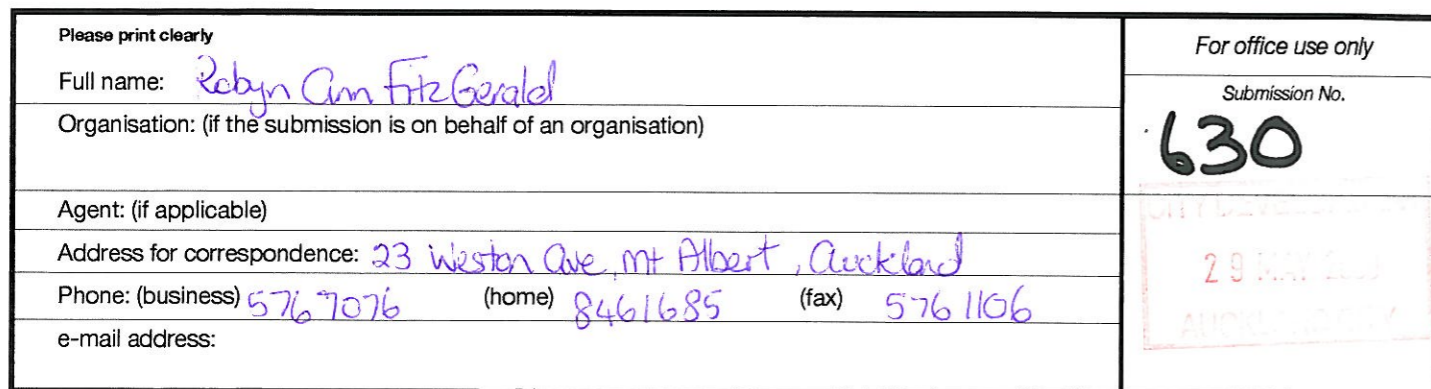 Please print clearly
Full name: Robyn Ann FitzGerald
Organisation: (if the submission is on behalf of an organisation)
Agent: (if applicable)
Address for correspondence: 23 Weston Ave, Mt Albert, Auckland
Phone: (business) 576 7076 (home) 8461685 (fax) 576 1106
e-mail address:
For office use only
Submission No.
630
29 MAY